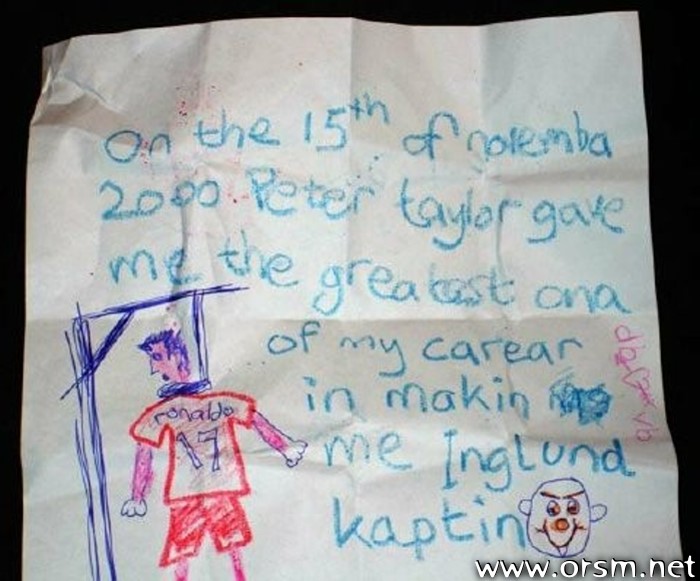 On the 15th of novemba
2000 Peter taylor gave
me the greatest ona
of my carear
in makin
me Inglund
kaptin
ronaldo
17
www.orsm.net